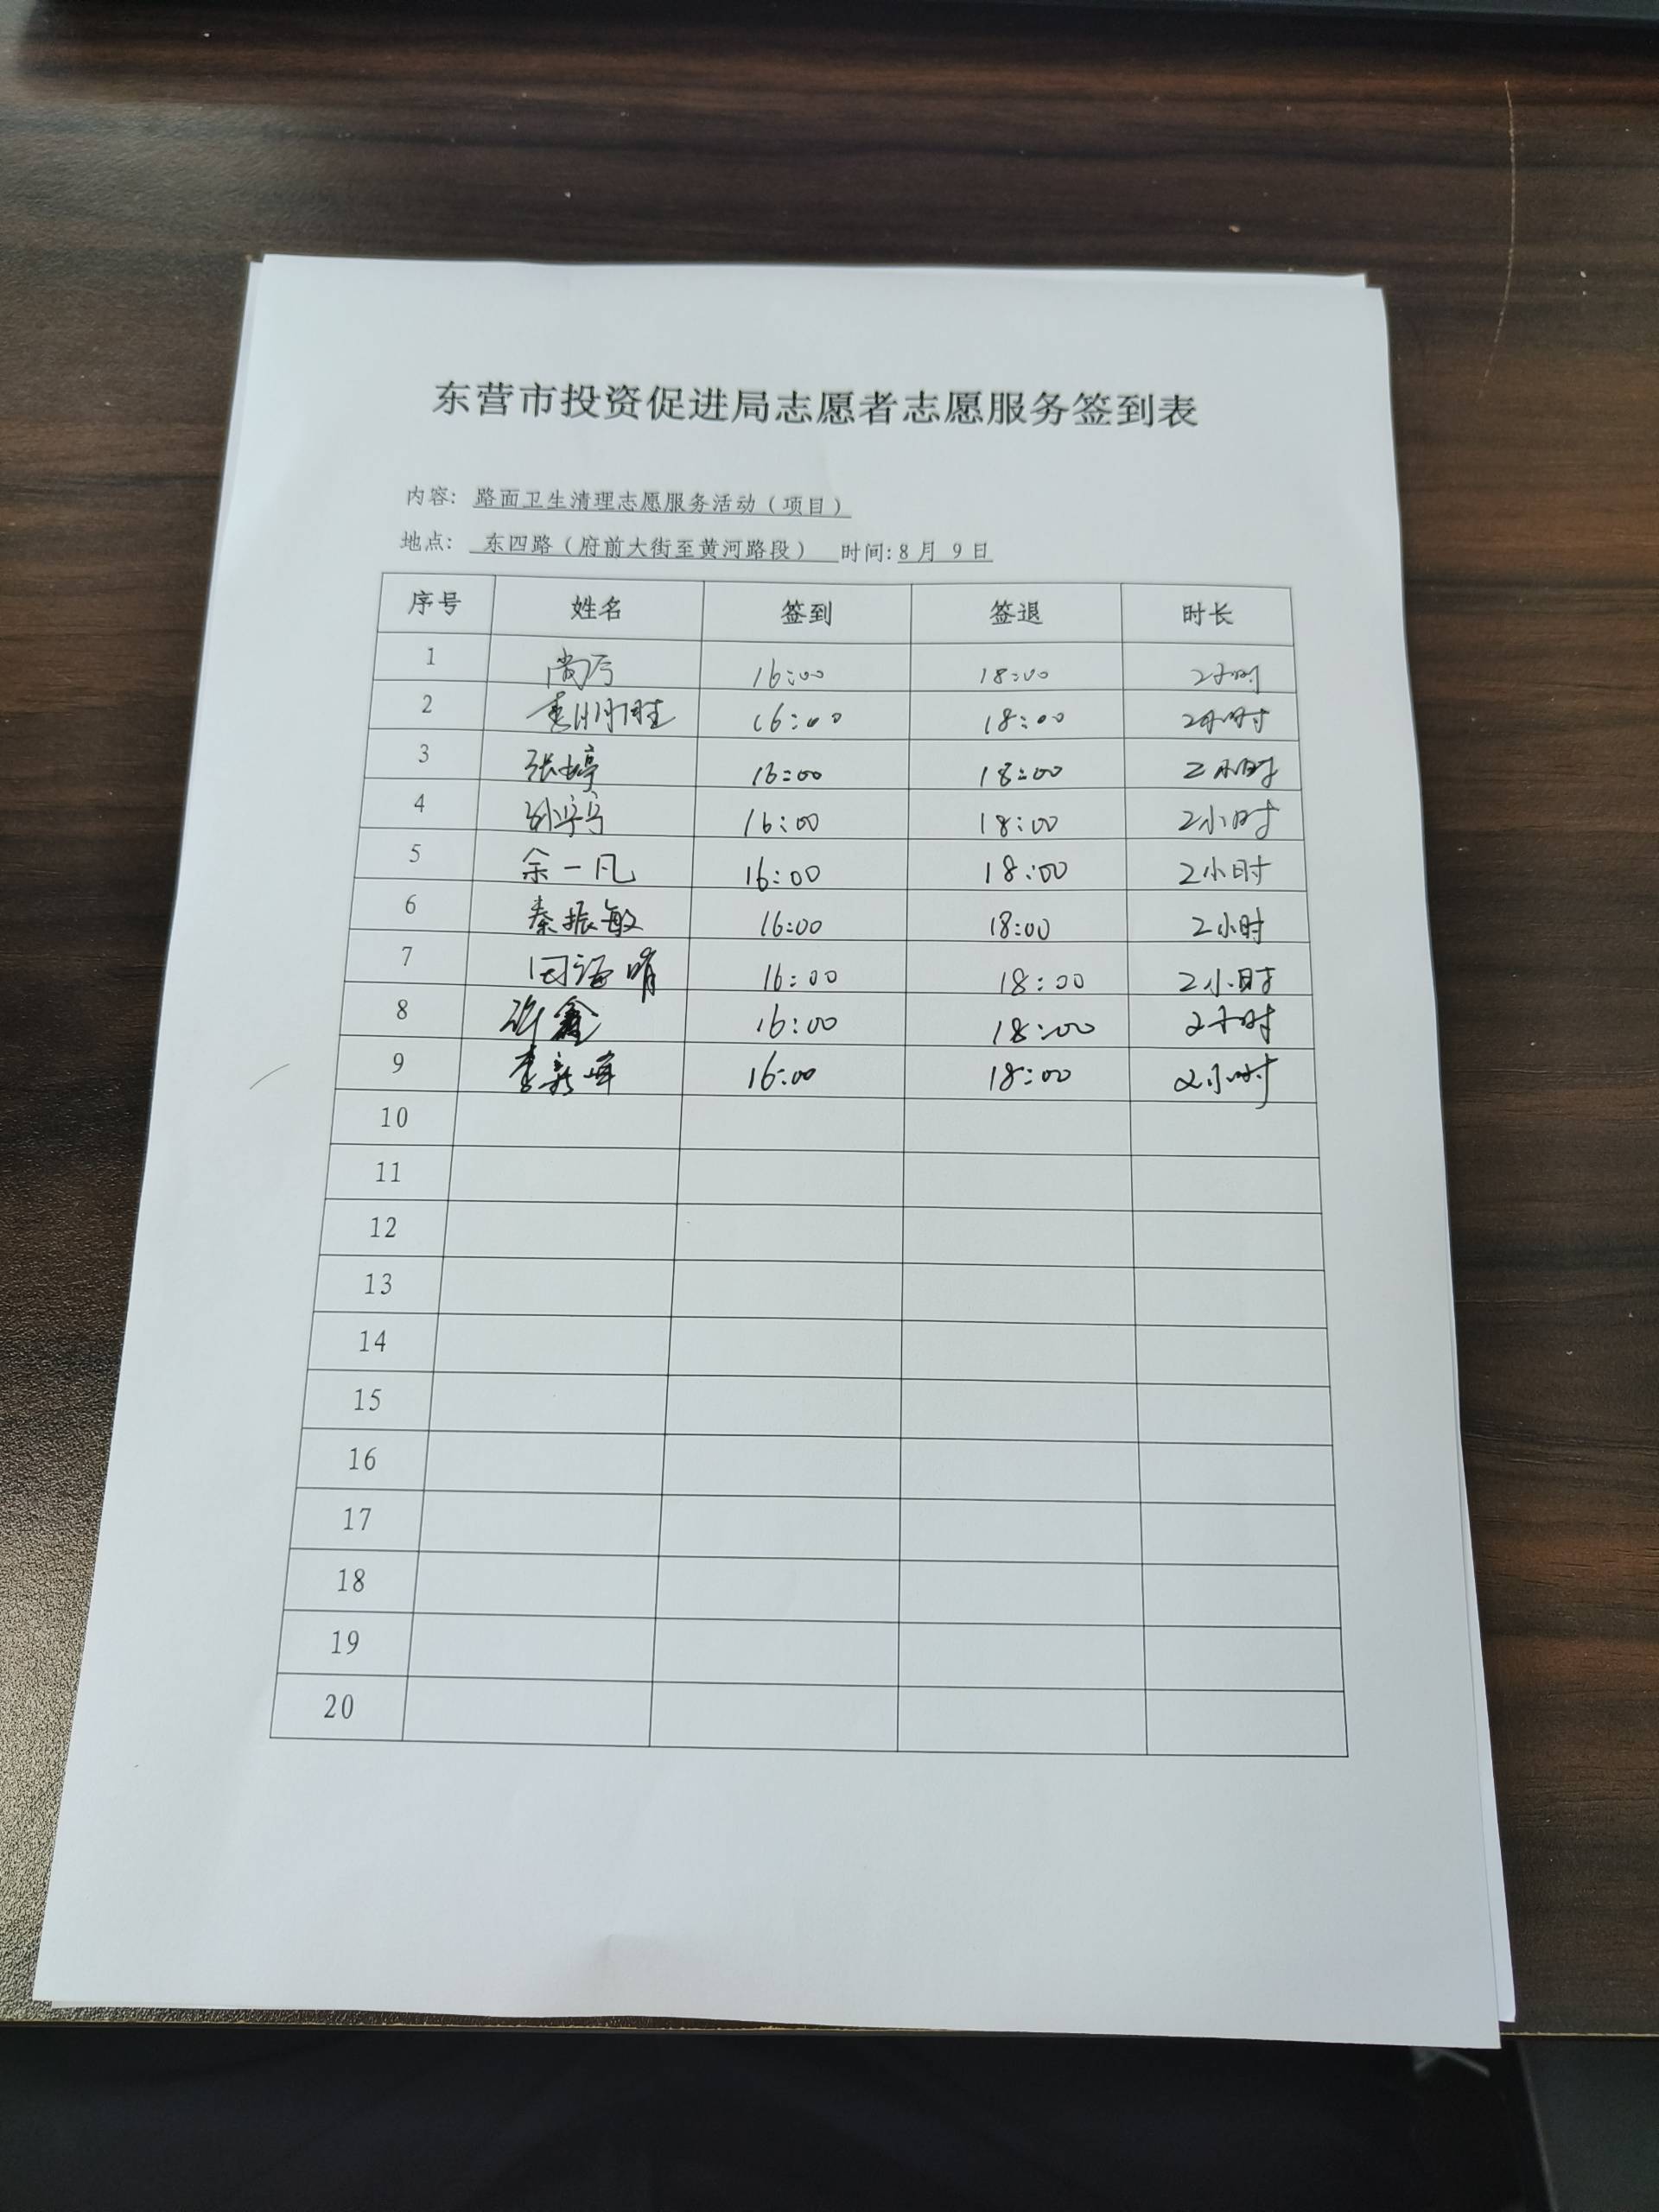 东营市投资促进局志愿者志愿服务签到表
内容: 路面卫生清理志愿服务活动（项目）
地点: 东四路（府前大街至黄河路段） 时间:8月 9日
序号 姓名 签到 签退 时长
1 16:00 18:00 2小时
2 16:00 18:00 2小时
3 张婷 16:00 18:00 2小时
4 16:00 18:00 2小时
5 余一凡 16:00 18:00 2小时
6 秦振敏 16:00 18:00 2小时
7 海晴 16:00 18:00 2小时
8 许鑫 16:00 18:00 2小时
9 李新峰 16:00 18:00 2小时
10
11
12
13
14
15
16
17
18
19
20